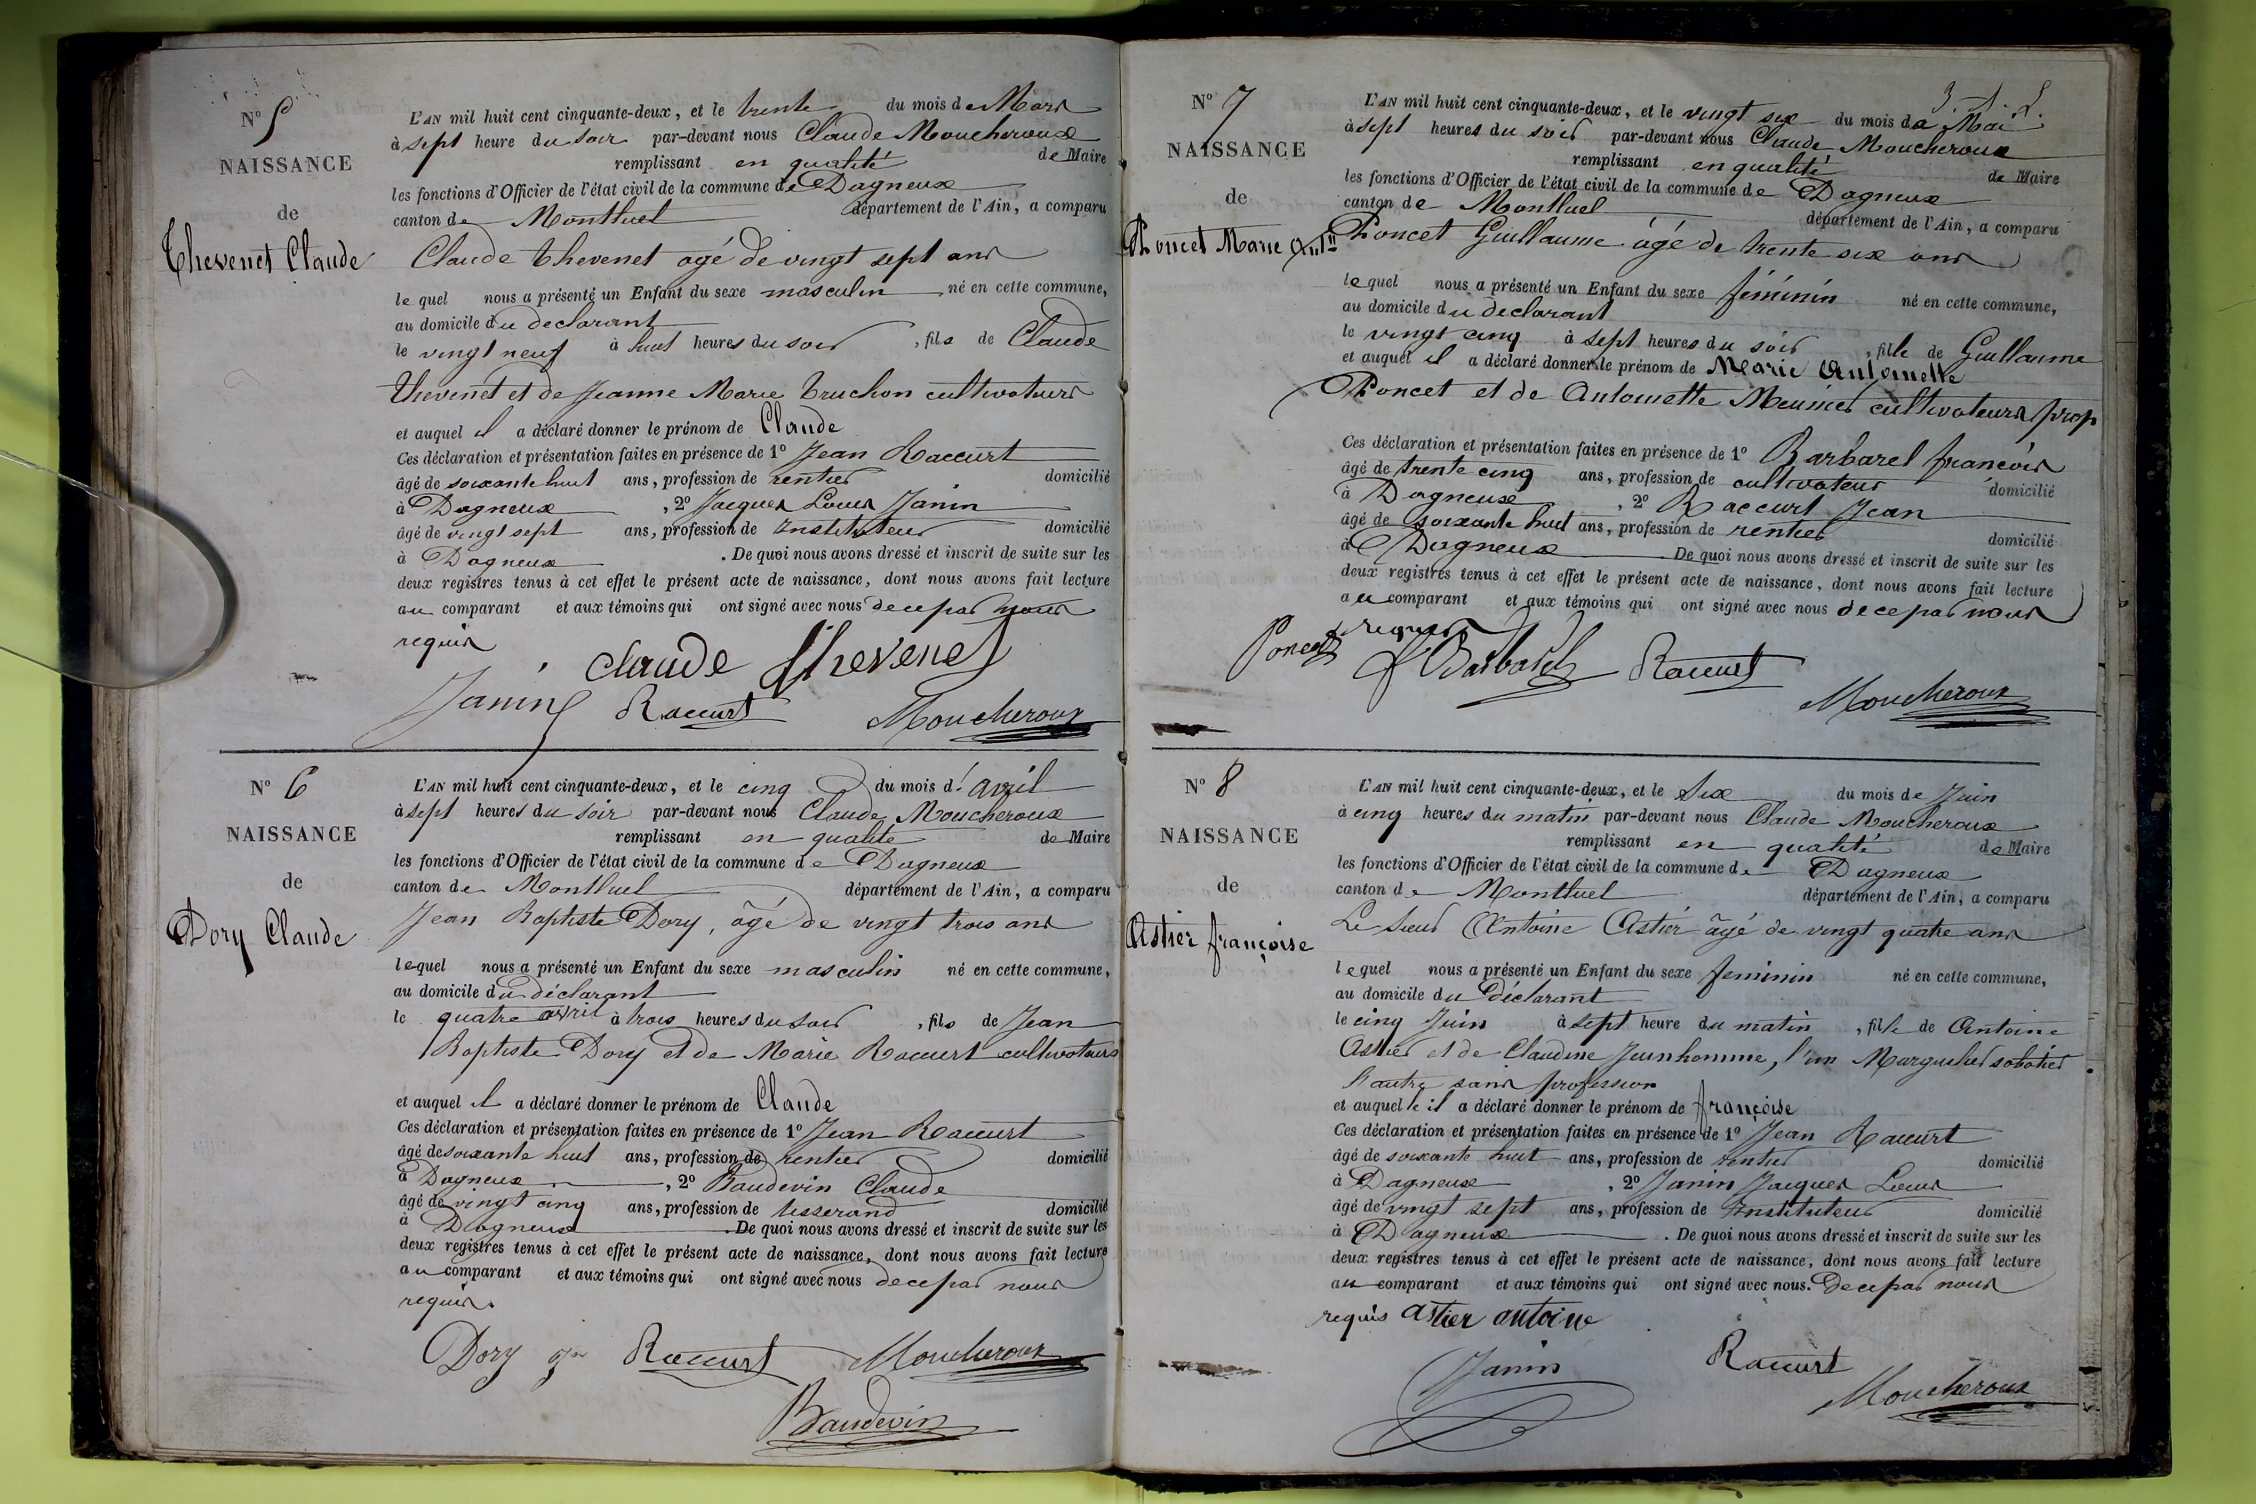 N° 5
NAISSANCE
de
Thevenet Claude
L'AN mil huit cent cinquante-deux, et le trente du mois de Mars
à sept heure du soir par-devant nous Claude Moucheroux
remplissant en qualité de Maire
les fonctions d'Officier de l'état civil de la commune de Dagneux
canton de Montluel département de l'Ain, a comparu
Claude Thevenet âgé de vingt sept ans
lequel nous a présenté un Enfant du sexe masculin né en cette commune,
au domicile du declarant
le vingt neuf à huit heures du soir, fils de Claude
Thevenet et de Jeanne Marie Truchon cultivateurs
et auquel il a déclaré donner le prénom de Claude
Ces déclaration et présentation faites en présence de 1° Jean Raccurt
âgé de soixante huit ans, profession de rentier domicilié
à Dagneux, 2° Jacques Louis Janin
âgé de vingt sept ans, profession de Instituteur domicilié
à Dagneux. De quoi nous avons dressé et inscrit de suite sur les
deux registres tenus à cet effet le présent acte de naissance, dont nous avons fait lecture
au comparant et aux témoins qui ont signé avec nous de ce par nous
requis
claude thevenet
Janin Raccurt Moucheroux
N° 6
NAISSANCE
de
Dory Claude
L'AN mil huit cent cinquante-deux, et le cinq du mois d'avril
à sept heures du soir par-devant nous Claude Moucheroux
remplissant en qualité de Maire
les fonctions d'Officier de l'état civil de la commune de Dagneux
canton de Montluel département de l'Ain, a comparu
Jean Baptiste Dory, âgé de vingt trois ans
lequel nous a présenté un Enfant du sexe masculin né en cette commune,
au domicile du déclarant
le quatre avril à trois heures du soir, fils de Jean
Baptiste Dory et de Marie Raccurt cultivateurs
et auquel il a déclaré donner le prénom de Claude
Ces déclaration et présentation faites en présence de 1° Jean Raccurt
âgé de soixante huit ans, profession de rentier domicilié
à Dagneux, 2° Baudevin Claude
âgé de vingt cinq ans, profession de tisserand domicilié
à Dagneux. De quoi nous avons dressé et inscrit de suite sur les
deux registres tenus à cet effet le présent acte de naissance, dont nous avons fait lecture
au comparant et aux témoins qui ont signé avec nous de ce par nous
requis.
Dory Raccurt Moucheroux
Baudevin
N° 7
NAISSANCE
de
Poncet Marie Antte
L'AN mil huit cent cinquante-deux, et le vingt six du mois de Mai
à sept heures du soir par-devant nous Claude Moucheroux
remplissant en qualité de Maire
les fonctions d'Officier de l'état civil de la commune de Dagneux
canton de Montluel département de l'Ain, a comparu
Poncet Guillaume âgé de trente six ans
lequel nous a présenté un Enfant du sexe féminin né en cette commune,
au domicile du declarant
le vingt cinq à sept heures du soir, fille de Guillaume
et auquel il a déclaré donner le prénom de Marie Antoinette
Poncet et de Antoinette Meunier cultivateurs prop
Ces déclaration et présentation faites en présence de 1° Barbarel françois
âgé de trente cinq ans, profession de cultivateur domicilié
à Dagneux, 2° Raccurt Jean
âgé de soixante huit ans, profession de rentier domicilié
à Dagneux. De quoi nous avons dressé et inscrit de suite sur les
deux registres tenus à cet effet le présent acte de naissance, dont nous avons fait lecture
au comparant et aux témoins qui ont signé avec nous de ce par nous
requis
Poncet f Barbarel Raccurt
Moucheroux
N° 8
NAISSANCE
de
Astier françoise
L'AN mil huit cent cinquante-deux, et le Six du mois de Juin
à cinq heures du matin par-devant nous Claude Moucheroux
remplissant en qualité de Maire
les fonctions d'Officier de l'état civil de la commune de Dagneux
canton de Montluel département de l'Ain, a comparu
Le Sieur Antoine Astier âgé de vingt quatre ans
lequel nous a présenté un Enfant du sexe feminin né en cette commune,
au domicile du Déclarant
le cinq Juin à sept heure du matin, fille de Antoine
Astier et de Claudine Jeunhomme, l'un Marguiller sabotier
l'autre sans profession
et auquelle il a déclaré donner le prénom de françoise
Ces déclaration et présentation faites en présence de 1° Jean Raccurt
âgé de soixante huit ans, profession de rentier domicilié
à Dagneux, 2° Janin Jacques Louis
âgé de vingt sept ans, profession de Instituteur domicilié
à Dagneux. De quoi nous avons dressé et inscrit de suite sur les
deux registres tenus à cet effet le présent acte de naissance, dont nous avons fait lecture
au comparant et aux témoins qui ont signé avec nous. De ce par nous
requis astier antoine
Janin Raccurt
Moucheroux